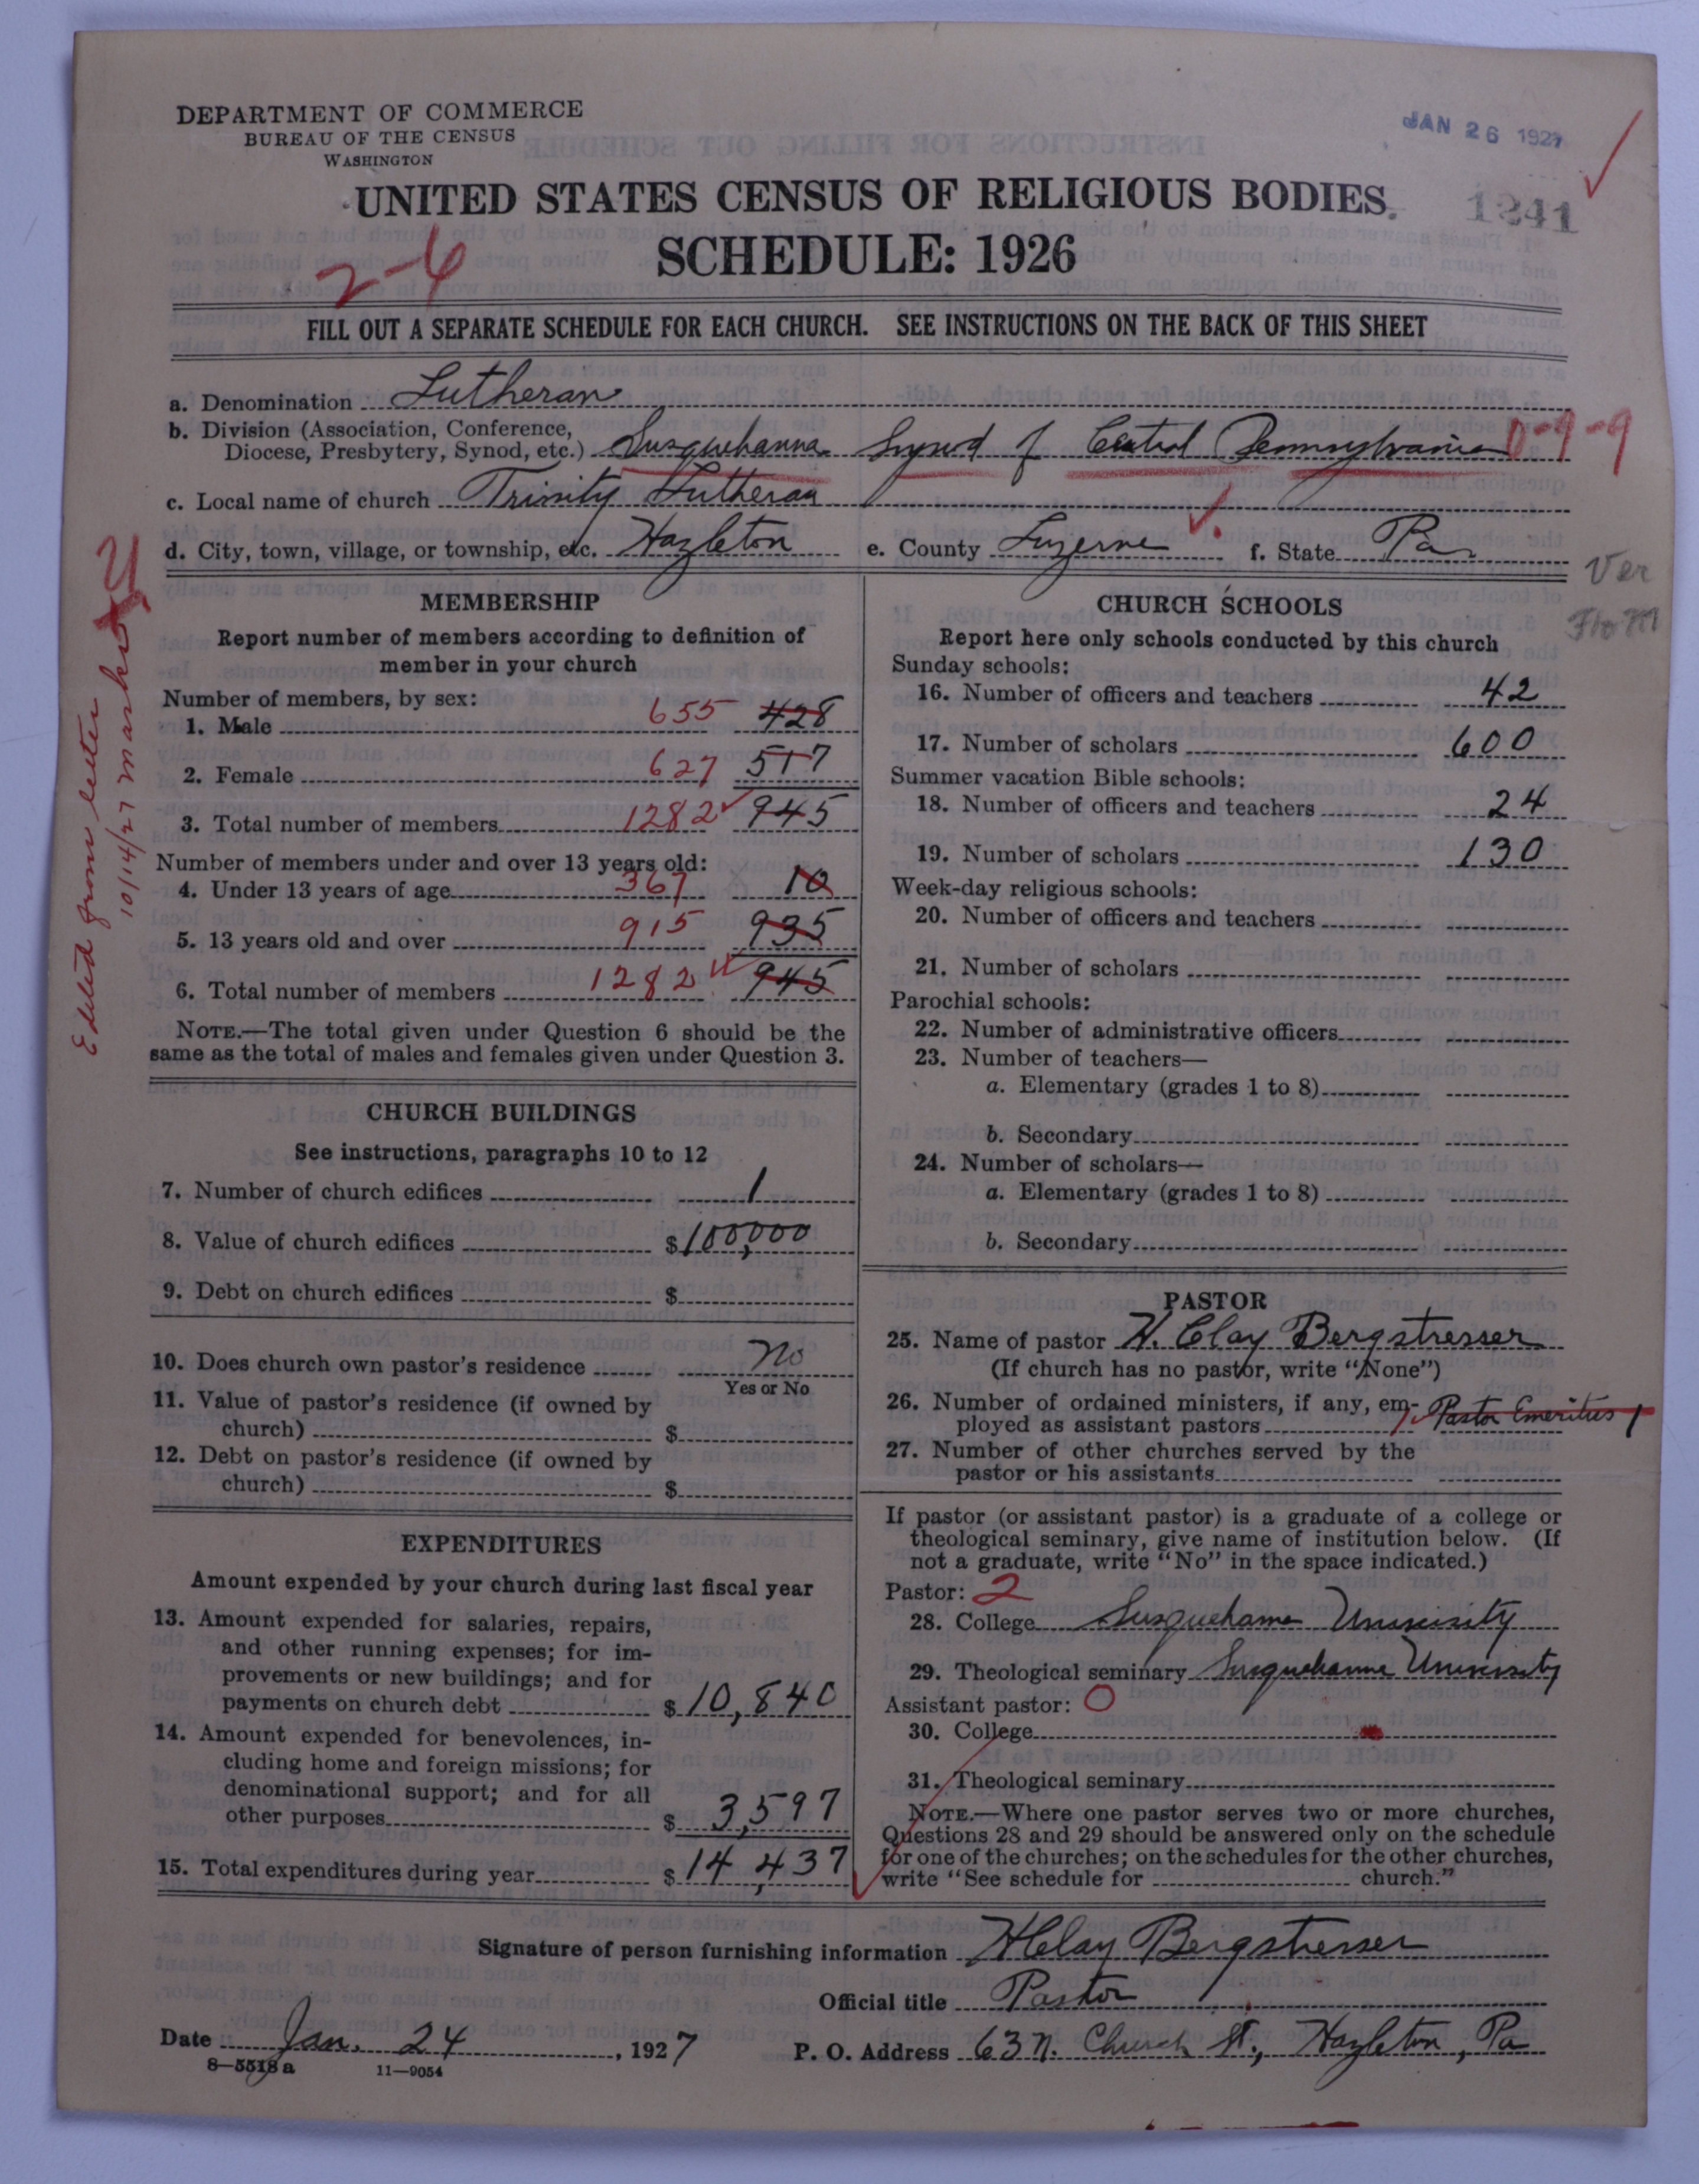 DEPARTMENT OF COMMERCE
BUREAU OF THE CENSUS
WASHINGTON
JAN 26 1927
UNITED STATES CENSUS OF RELIGIOUS BODIES
1241
SCHEDULE: 1926
2-6
FILL OUT A SEPARATE SCHEDULE FOR EACH CHURCH. SEE INSTRUCTIONS ON THE BACK OF THIS SHEET
a. Denomination Lutheran
b. Division (Association, Conference,
Diocese, Presbytery, Synod, etc.) Susquehanna Synod of Central Pennsylvania 0-9-9
c. Local name of church Trinity Lutheran
d. City, town, village, or township, etc. Hazleton e. County Luzerne f. State Pa
Ver
Edited from letter
10/14/27
MEMBERSHIP
Report number of members according to definition of
member in your church
Number of members, by sex:
1. Male 655 428
2. Female 627 517
3. Total number of members 1282 945
Number of members under and over 13 years old:
4. Under 13 years of age 367 10
5. 13 years old and over 915 935
6. Total number of members 1282 945
NOTE.—The total given under Question 6 should be the
same as the total of males and females given under Question 3.
CHURCH BUILDINGS
See instructions, paragraphs 10 to 12
7. Number of church edifices 1
8. Value of church edifices $100,000
9. Debt on church edifices $
10. Does church own pastor's residence No
Yes or No
11. Value of pastor's residence (if owned by
church) $
12. Debt on pastor's residence (if owned by
church) $
EXPENDITURES
Amount expended by your church during last fiscal year
13. Amount expended for salaries, repairs,
and other running expenses; for im-
provements or new buildings; and for
payments on church debt $10,840
14. Amount expended for benevolences, in-
cluding home and foreign missions; for
denominational support; and for all
other purposes $3,597
15. Total expenditures during year $14,437
CHURCH SCHOOLS
Report here only schools conducted by this church
Sunday schools:
16. Number of officers and teachers 42
17. Number of scholars 600
Summer vacation Bible schools:
18. Number of officers and teachers 24
19. Number of scholars 130
Week-day religious schools:
20. Number of officers and teachers
21. Number of scholars
Parochial schools:
22. Number of administrative officers
23. Number of teachers—
a. Elementary (grades 1 to 8)
b. Secondary
24. Number of scholars—
a. Elementary (grades 1 to 8)
b. Secondary
PASTOR
25. Name of pastor H. Clay Bergstresser
(If church has no pastor, write "None")
26. Number of ordained ministers, if any, em-
ployed as assistant pastors Pastor Emeritus 1
27. Number of other churches served by the
pastor or his assistants
If pastor (or assistant pastor) is a graduate of a college or
theological seminary, give name of institution below. (If
not a graduate, write "No" in the space indicated.)
Pastor: 2
28. College Susquehanna University
29. Theological seminary Susquehanna University
Assistant pastor: 0
30. College
31. Theological seminary
NOTE.—Where one pastor serves two or more churches,
Questions 28 and 29 should be answered only on the schedule
for one of the churches; on the schedules for the other churches,
write "See schedule for church."
Signature of person furnishing information H Clay Bergstresser
Official title Pastor
Date Jan. 24, 1927 P. O. Address 63 N. Church St., Hazleton, Pa
8—5518a 11—9054